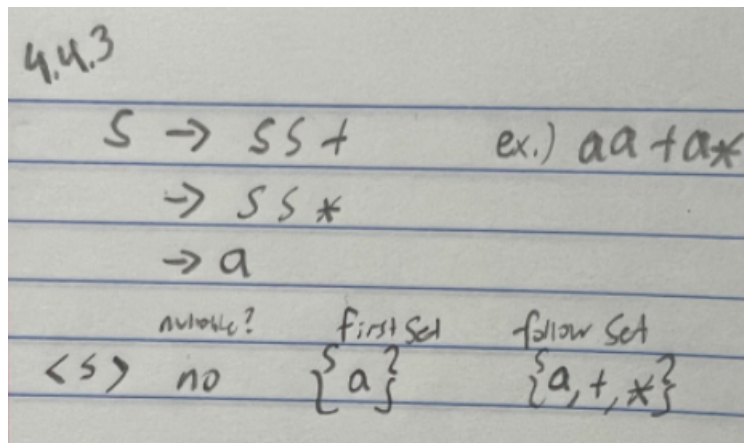 4.4.3
S → SS+ ex.) aa+a*
→ SS*
→ a
nullable? first set follow set
<S> no {a} {a,+,*}